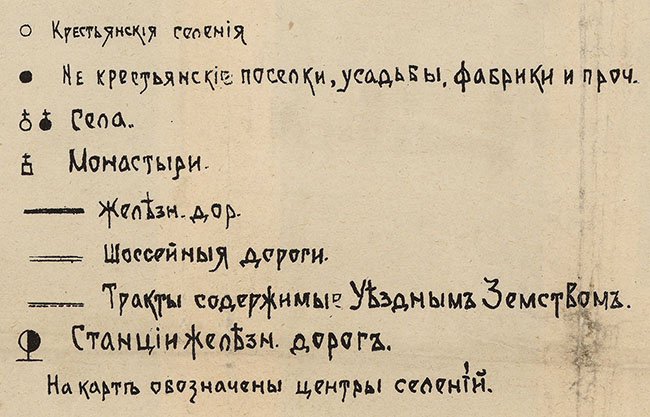 Крестьянскія селенія
Не крестьянскіе поселки, усадьбы, фабрики и проч.
Села.
Монастыри.
Желѣзн. дор.
Шоссейныя дороги.
Тракты содержимые Уѣзднымъ Земствомъ.
Станціи желѣзн. дорогъ.
На картѣ обозначены центры селеній.